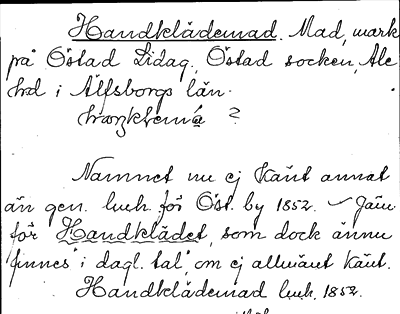 Handklädemad. Mad, mark
på Östad Sidag, Östad socken, Ale
hd i Älfsborgs län.
?
Namnet nu ej känt annat
än gen. luh. för Öst. by 1852. Jäm
för Handklädet, som dock ännu
finnes i dagl. tal, om ej allmänt känt.
Handklädemad luh. 1852.